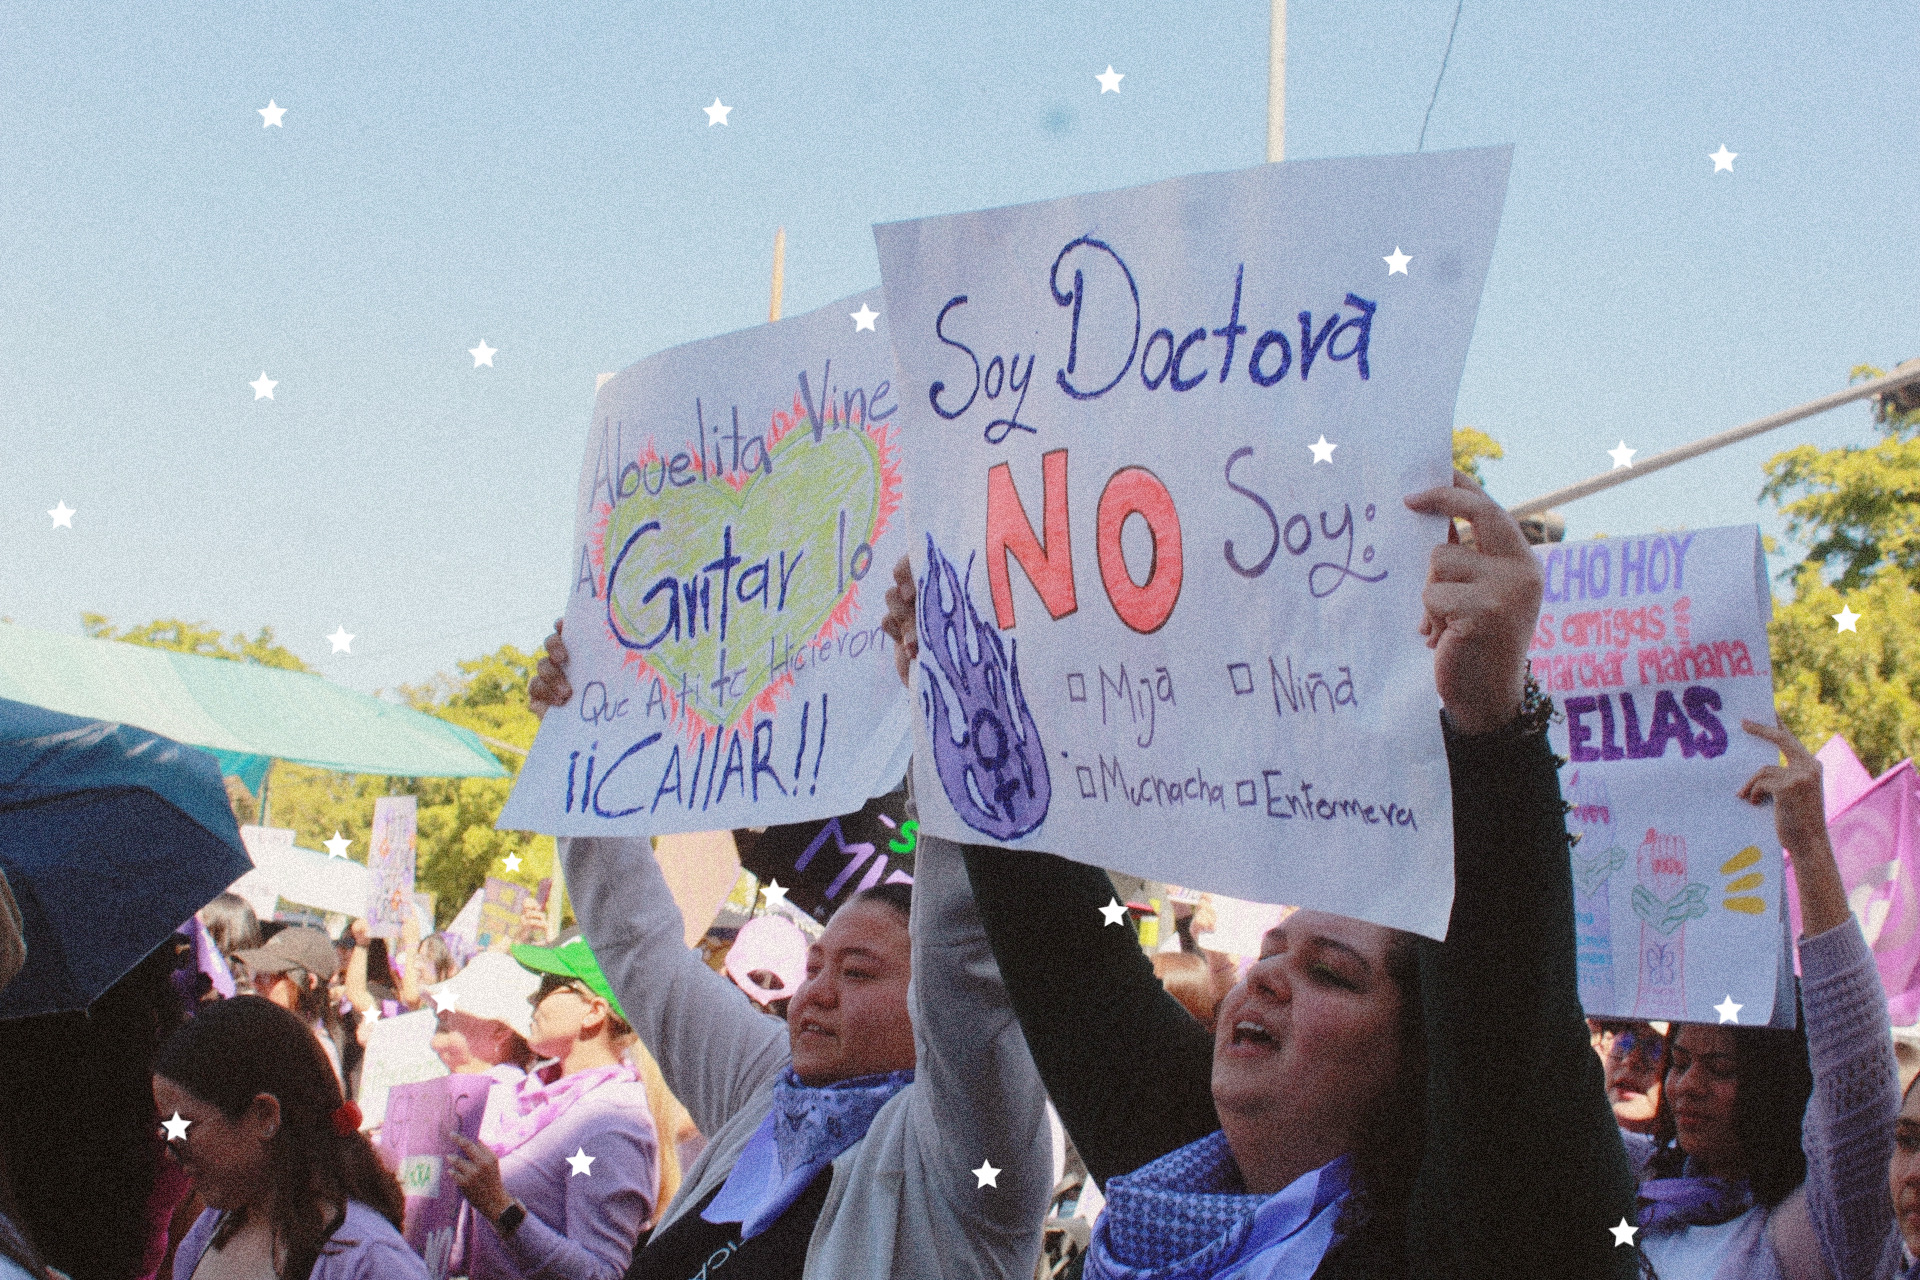 Abuelita Vine
A Gritar lo
Que A ti te Hicieron
¡¡CAllAR!!
Soy Doctora
NO Soy:
Mija Niña
Muchacha Enfermera
CHO HOY
amigas
marchar mañana..
EllAS